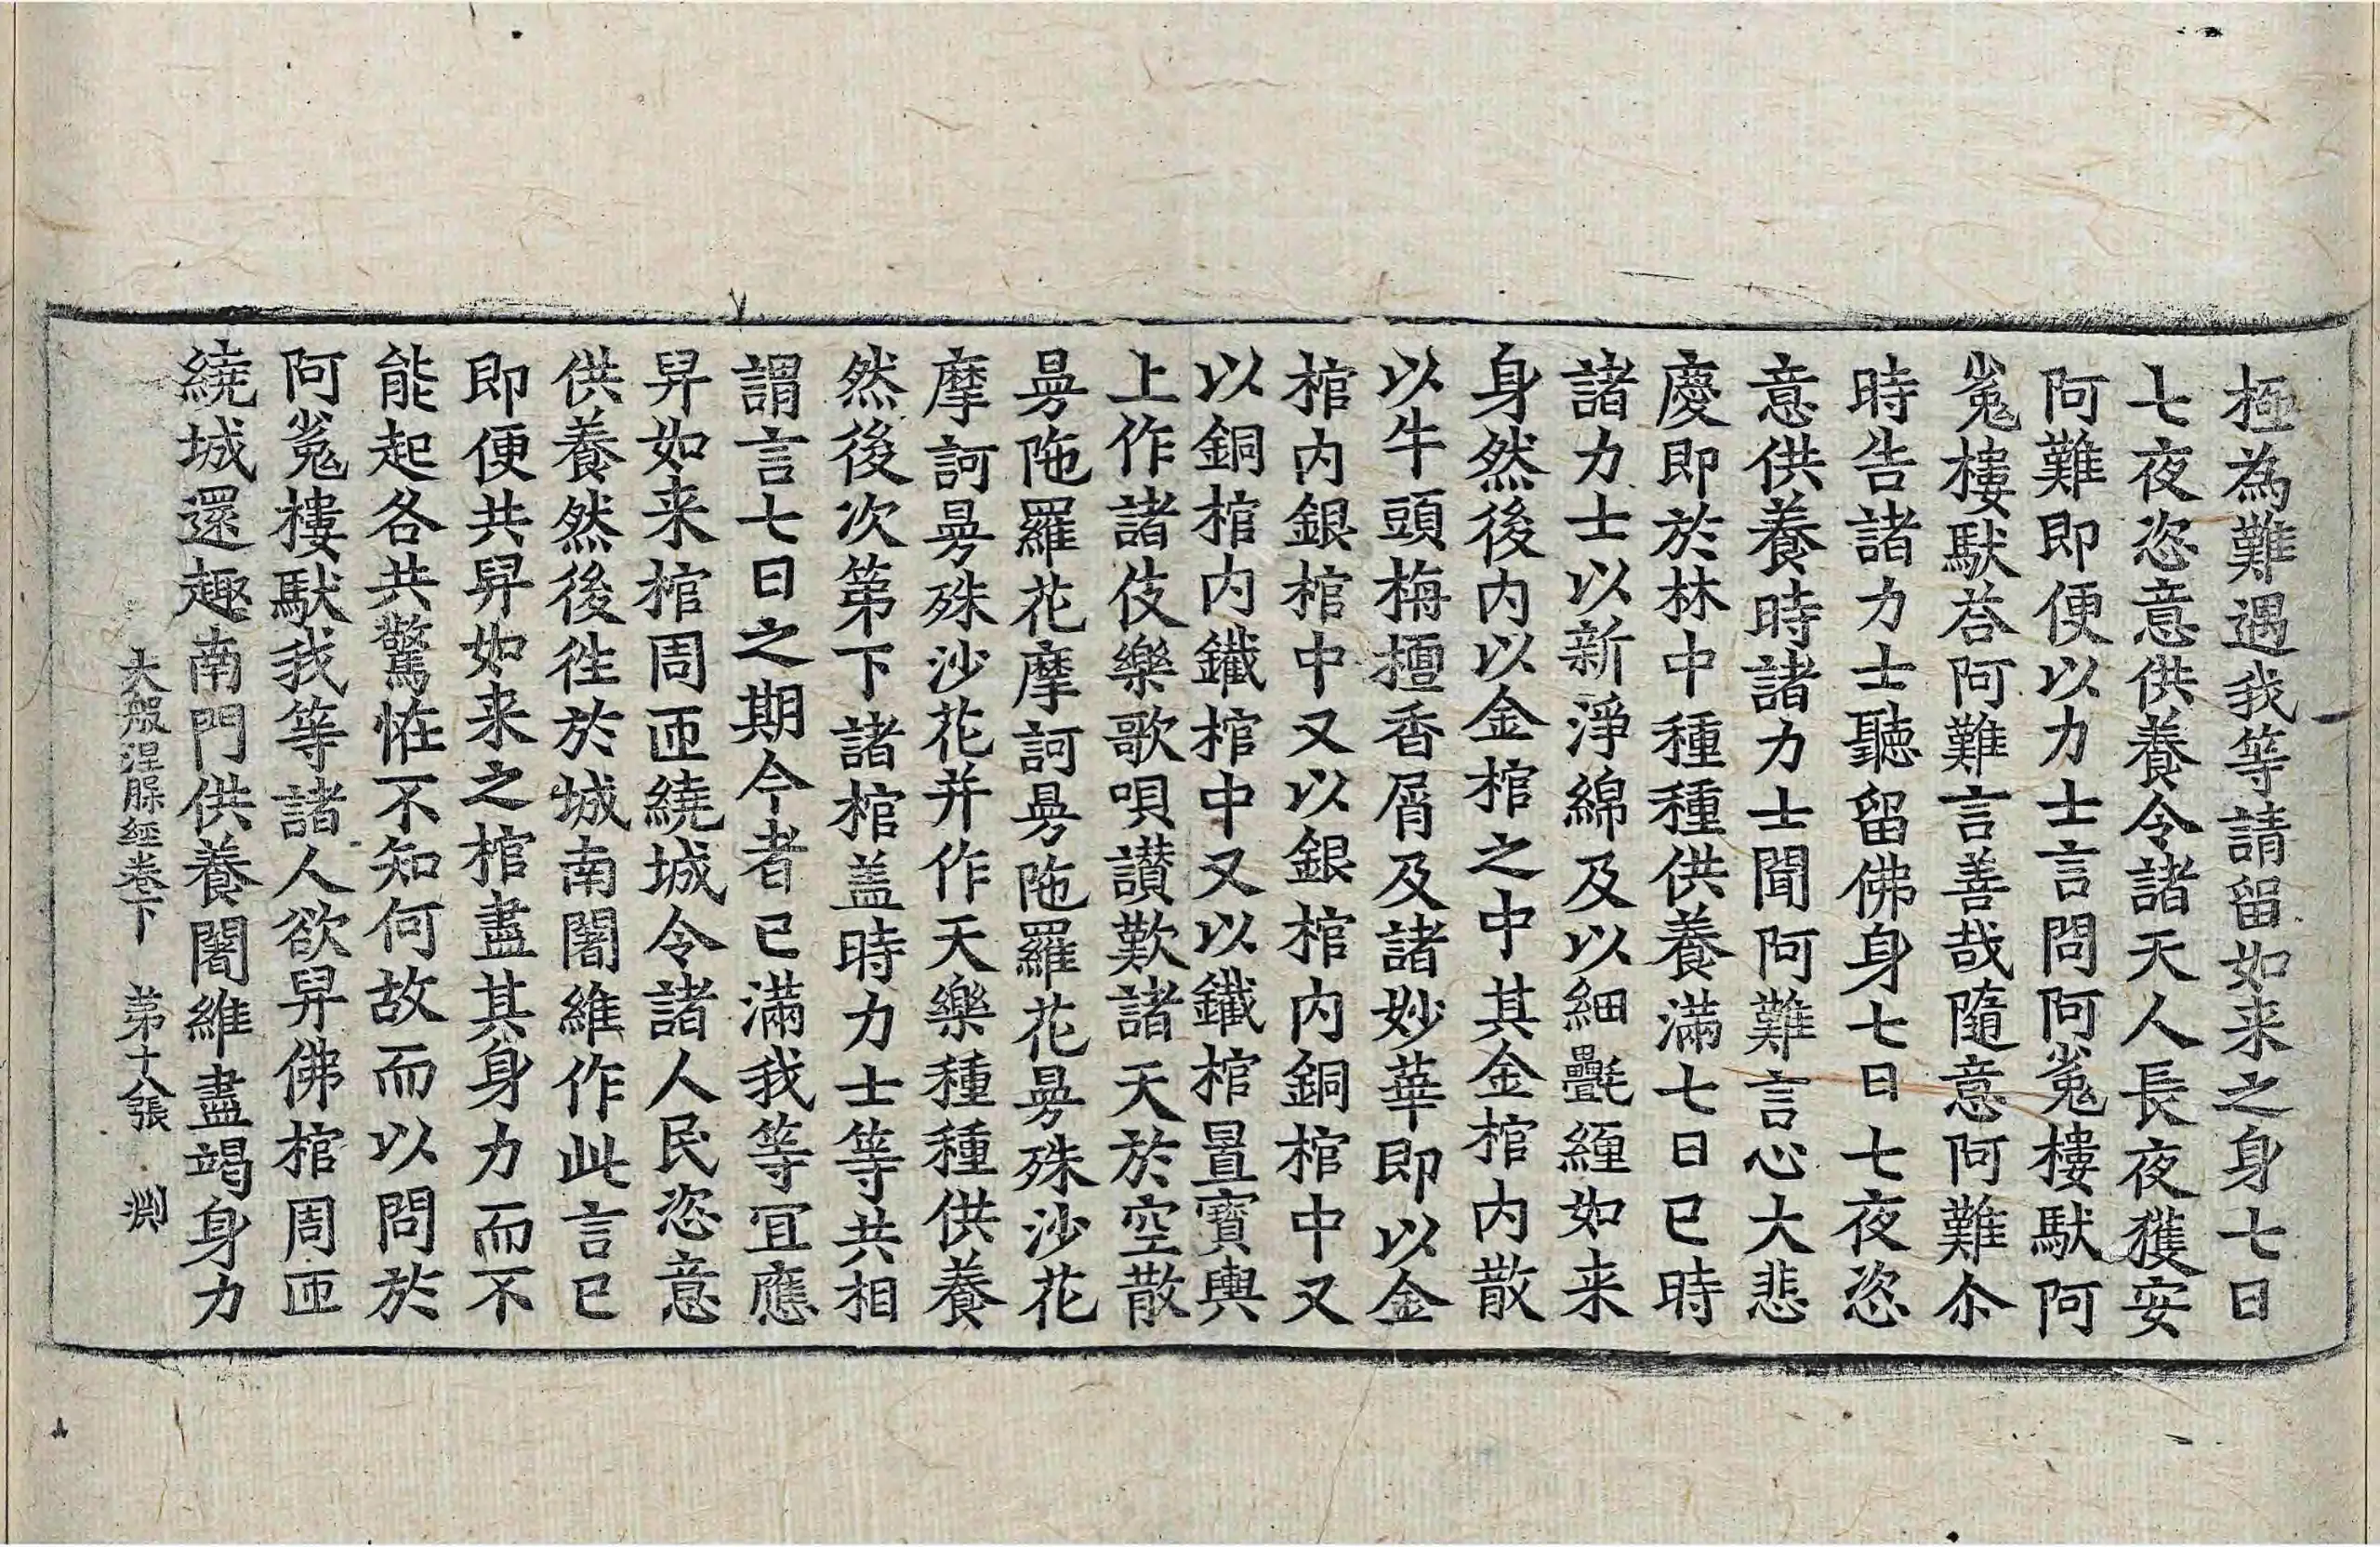 極為難遇我等請留如来之身七日
七夜恣意供養令諸天人長夜獲安
阿難即便以力士言問阿㝹樓馱阿
㝹樓馱荅阿難言善哉隨意阿難尒
時告諸力士聽留佛身七日七夜恣
意供養時諸力士聞阿難言心大悲
慶即於林中種種供養滿七日已時
諸力士以新淨綿及以細㲲纏如来
身然後内以金棺之中其金棺内散
以牛頭栴檀香屑及諸妙華即以金
棺内銀棺中又以銀棺内銅棺中又
以銅棺内鐵棺中又以鐵棺置寶輿
上作諸伎樂歌唄讃歎諸天於空散
曼陁羅花摩訶曼陁羅花曼殊沙花
摩訶曼殊沙花并作天樂種種供養
然後次第下諸棺盖時力士等共相
謂言七日之期今者已滿我等冝應
舁如来棺周匝繞城令諸人民恣意
供養然後徃於城南闍維作此言已
即便共舁如来之棺盡其身力而不
能起各共驚恠不知何故而以問於
阿㝹樓馱我等諸人欲舁佛棺周匝
繞城還趣南門供養闍維盡竭身力
大般涅槃經卷下　第十八張　渕